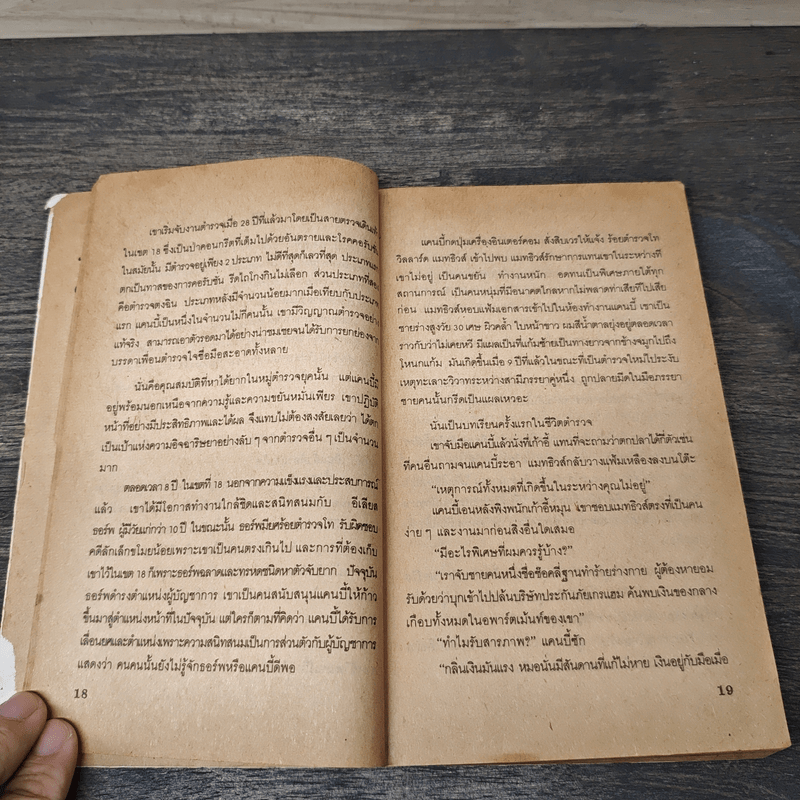 เขาเริ่มจับงานตำรวจเมื่อ 28 ปีที่แล้วมาโดยเป็นสายตรวจเดินเท้า
ในเขต 18 ซึ่งเป็นป่าคอนกรีตที่เต็มไปด้วยอันตรายและโรคคอร์รับชั่น
ในสมัยนั้น มีตำรวจอยู่เพียง 2 ประเภท ไม่ดีที่สุดก็เลวที่สุด ประเภทแรก
ตกเป็นทาสของการคอรับชั่น รีดไถโกงกินไม่เลือก ส่วนประเภทที่สอง
คือตำรวจตงฉิน ประเภทหลังมีจำนวนน้อยมากเมื่อเทียบกับประเภท
แรก แคนบี้เป็นหนึ่งในจำนวนไม่กี่คนนั้น เขามีวิญญาณตำรวจอย่าง
แท้จริง สามารถเอาตัวรอดมาได้อย่างน่าชมเชยจนได้รับการยกย่องจาก
บรรดาเพื่อนตำรวจใจซื่อมือสะอาดทั้งหลาย
นั่นคือคุณสมบัติที่หาได้ยากในหมู่ตำรวจยุคนั้น แต่แคนบี้มี
อยู่พร้อมนอกเหนือจากความรู้และความขยันหมั่นเพียร เขาปฏิบัติ
หน้าที่อย่างมีประสิทธิภาพและได้ผล จึงแทบไม่ต้องสงสัยเลยว่า ได้ตก
เป็นเป้าแห่งความอิจฉาริษยาอย่างลับ ๆ จากตำรวจอื่น ๆ เป็นจำนวน
มาก
ตลอดเวลา 8 ปี ในเขตที่ 18 นอกจากความแข็งแรงและประสบการณ์
แล้ว เขาได้มีโอกาสทำงานใกล้ชิดและสนิทสนมกับ อีเลียส
ธอร์พ ผู้มีวัยแก่กว่า 10 ปี ในขณะนั้น ธอร์พมียศร้อยตำรวจโท รับผิดชอบ
คดีลักเล็กขโมยน้อยเพราะเขาเป็นคนตรงเกินไป และการที่ต้องเก็บ
เขาไว้ในเขต 18 ก็เพราะธอร์พฉลาดและทรหดชนิดหาตัวจับยาก ปัจจุบัน
ธอร์พดำรงตำแหน่งผู้บัญชาการ เขาเป็นคนสนับสนุนแคนบี้ให้ก้าว
ขึ้นมาสู่ตำแหน่งหน้าที่ในปัจจุบัน แต่ใครก็ตามที่คิดว่า แคนบี้ได้รับการ
เลื่อนยศและตำแหน่งเพราะความสนิทสนมเป็นการส่วนตัวกับผู้บัญชาการ
แสดงว่า คนคนนั้นยังไม่รู้จักธอร์พหรือแคนบี้ดีพอ
18
แคนบี้กดปุ่มเครื่องอินเตอร์คอม สั่งสิบเวรให้แจ้ง ร้อยตำรวจโท
วิลลาร์ด แมทธิวส์ เข้าไปพบ แมทธิวส์รักษาการแทนเขาในระหว่างที่
เขาไม่อยู่ เป็นคนขยัน ทำงานหนัก อดทนเป็นพิเศษภายใต้ทุก
สถานการณ์ เป็นคนหนุ่มที่มีอนาคตไกลหากไม่พลาดท่าเสียทีไปเสีย
ก่อน แมทธิวส์หอบแฟ้มเอกสารเข้าไปในห้องทำงานแคนบี้ เขาเป็น
ชายร่างสูงวัย 30 เศษ ผิวคล้ำ ใบหน้าขาว ผมสีน้ำตาลยุ่งอยู่ตลอดเวลา
ราวกับว่าไม่เคยหวี มีแผลเป็นที่แก้มซ้ายเป็นทางยาวจากข้างจมูกไปถึง
โหนกแก้ม มันเกิดขึ้นเมื่อ 9 ปีที่แล้วในขณะที่เป็นตำรวจใหม่ไประงับ
เหตุทะเลาะวิวาทระหว่างสามีภรรยาคู่หนึ่ง ถูกปลายมีดในมือภรรยา
ชายคนนั้นกรีดเป็นแผลเหวอะ
นันเป็นบทเรียนครั้งแรกในชีวิตตำรวจ
เขาจับมือแคนบี้แล้วนั่งที่เก้าอี้ แทนที่จะถามว่าตกปลาได้กี่ตัวเช่น
ที่คนอื่นถามจนแคนบี้ระอา แมทธิวส์กลับวางแฟ้มเหลืองลงบนโต๊ะ
“เหตุการณ์ทั้งหมดที่เกิดขึ้นในระหว่างคุณไม่อยู่”
แคนบี้เอนหลังพิงพนักเก้าอี้หมุน เขาชอบแมทธิวส์ตรงที่เป็นคน
ง่าย ๆ และงานมาก่อนสิ่งอื่นใดเสมอ
“มีอะไรพิเศษที่ผมควรรู้บ้าง?”
“เราจับชายคนหนึ่งชื่อซีอคลี่ฐานทำร้ายร่างกาย ผู้ต้องหายอม
รับด้วยว่าบุกเข้าไปปล้นบริษัทประกันภัยเกรแฮม ค้นพบเงินของกลาง
เกือบทั้งหมดในอพาร์ตเม้นท์ของเขา”
“ทำไมรับสารภาพ?” แคนบี้ซัก
“กลิ่นเงินมันแรง หมอนั่นมีสันดานที่แก้ไม่หาย เงินอยู่กับมือเมื่อ
19